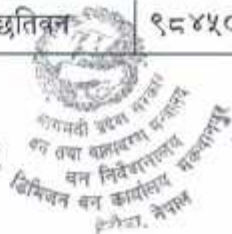 छतिवन ९८४५०
बागमती प्रदेश सरकार
वन तथा वातावरण मन्त्रालय
वन निर्देशनालय
डिभिजन वन कार्यालय मकवानपुर
हेटौंडा, नेपाल